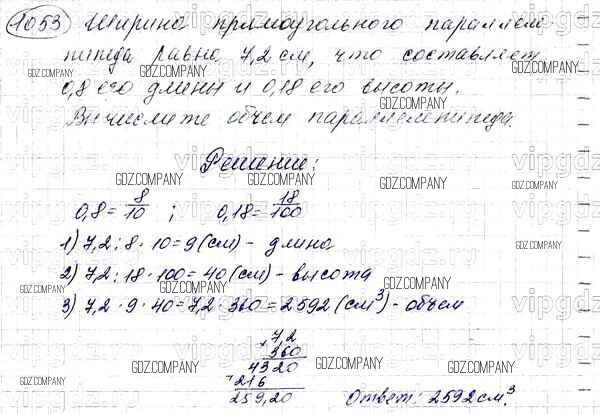 1053 Ширина прямоугольного параллеле-
пипеда равна 7,2 см, что составляет
0,8 его длины и 0,18 его высоты.
Вычислите объем параллелепипеда.
Решение:
0,8 = 8/10 ; 0,18 = 18/100
1) 7,2 : 8 · 10 = 9 (см) - длина
2) 7,2 : 18 · 100 = 40 (см) - высота
3) 7,2 · 9 · 40 = 7,2 · 360 = 2592 (см³) - объем
× 7,2
360
4320
+ 216
259,20
Ответ: 2592 см³.
GDZ.COMPANY
vipgdz.ru